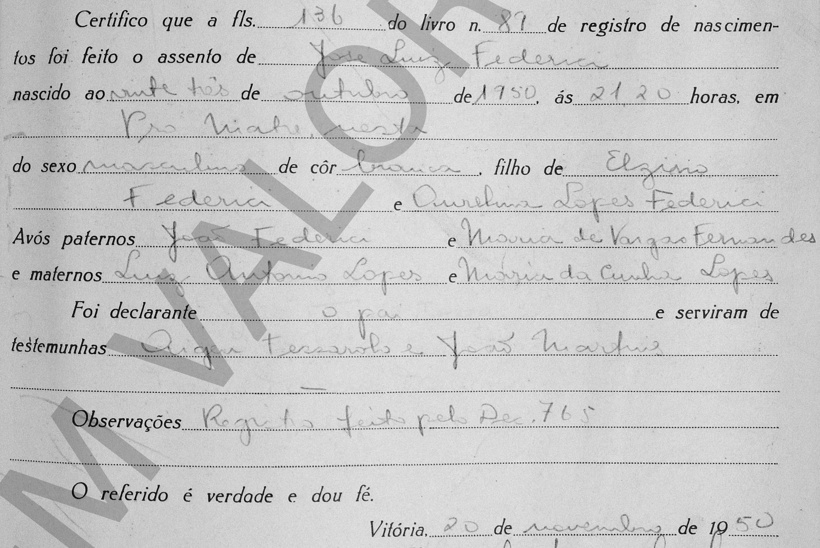 Certifico que a fls. 136 do livro n. 87 de registro de nascimen-
tos foi feito o assento de José Luiz Federici
nascido ao vinte três de outubro de 1950, ás 21,20 horas, em
Pro Matre, nesta
do sexo masculino de côr branca, filho de Elzirio
Federici e Aurelina Lopes Federici
Avós paternos José Federici e Maria de Vargas Fernandes
e maternos Luiz Antonio Lopes e Maria da Cunha Lopes
Foi declarante o pai e serviram de
testemunhas Tessarolo e José Martins
Observações Registro feito pelo Dec. 765
O referido é verdade e dou fé.
Vitória, 20 de novembro de 1950
M VALOR